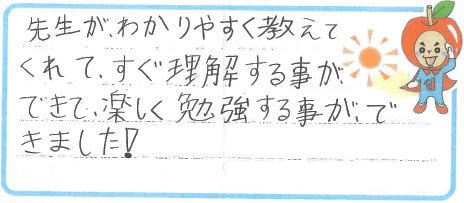 先生が、わかりやすく教えて
くれて、すぐ理解する事が、
できて、楽しく勉強する事が、で
きました!